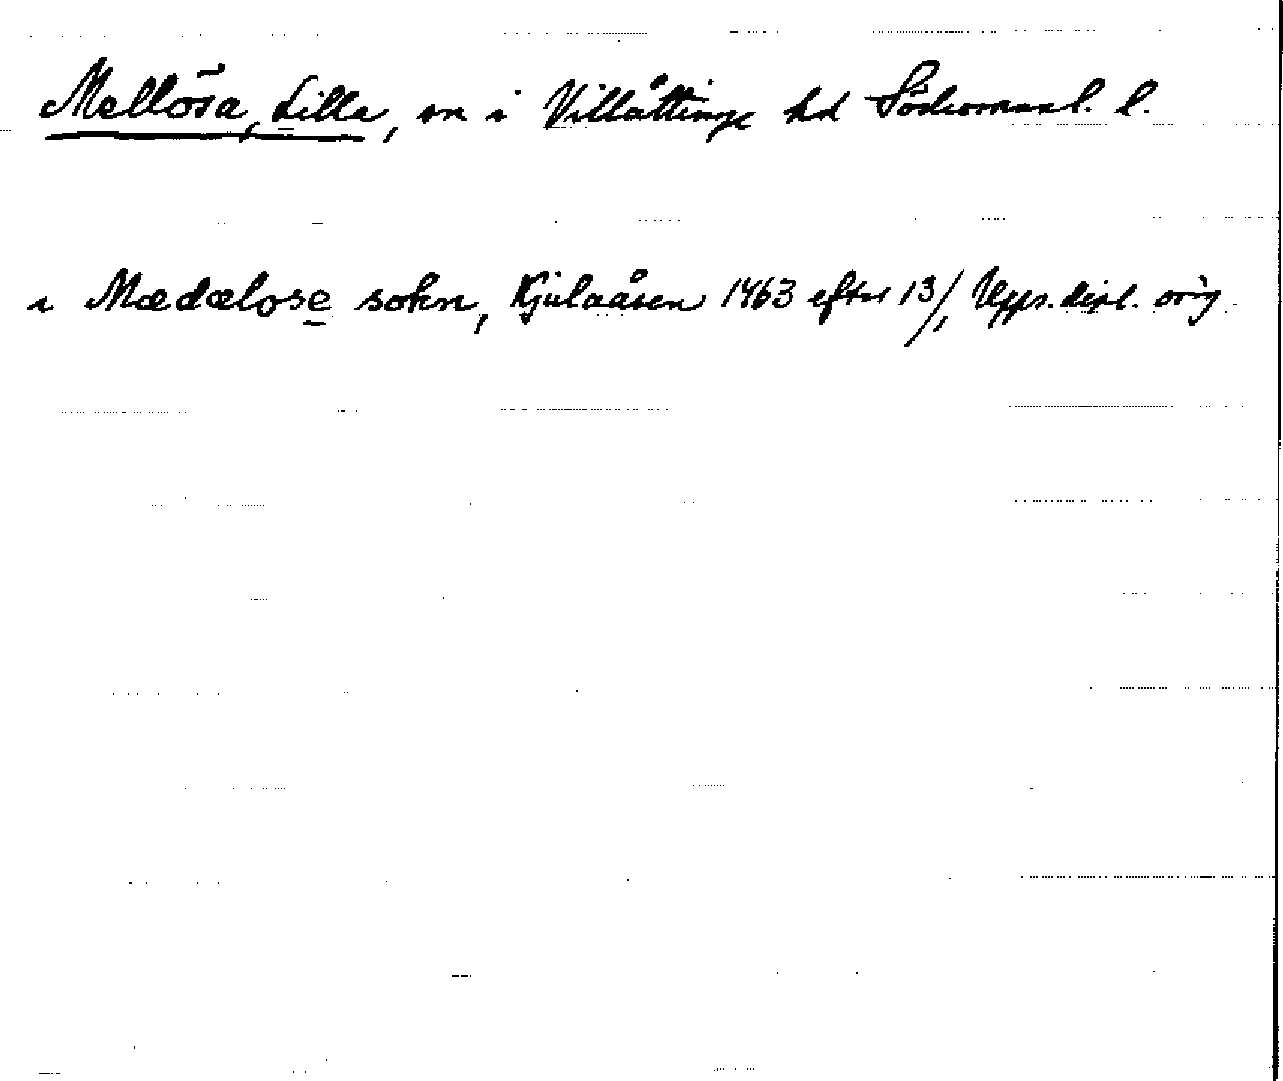 Mellösa, Lilla, sn i Villåttinge hd Södermanl. l.
i Mædælose sokn, Kjulaåsen 1463 efter 13/1 Upps. dipl. orig.